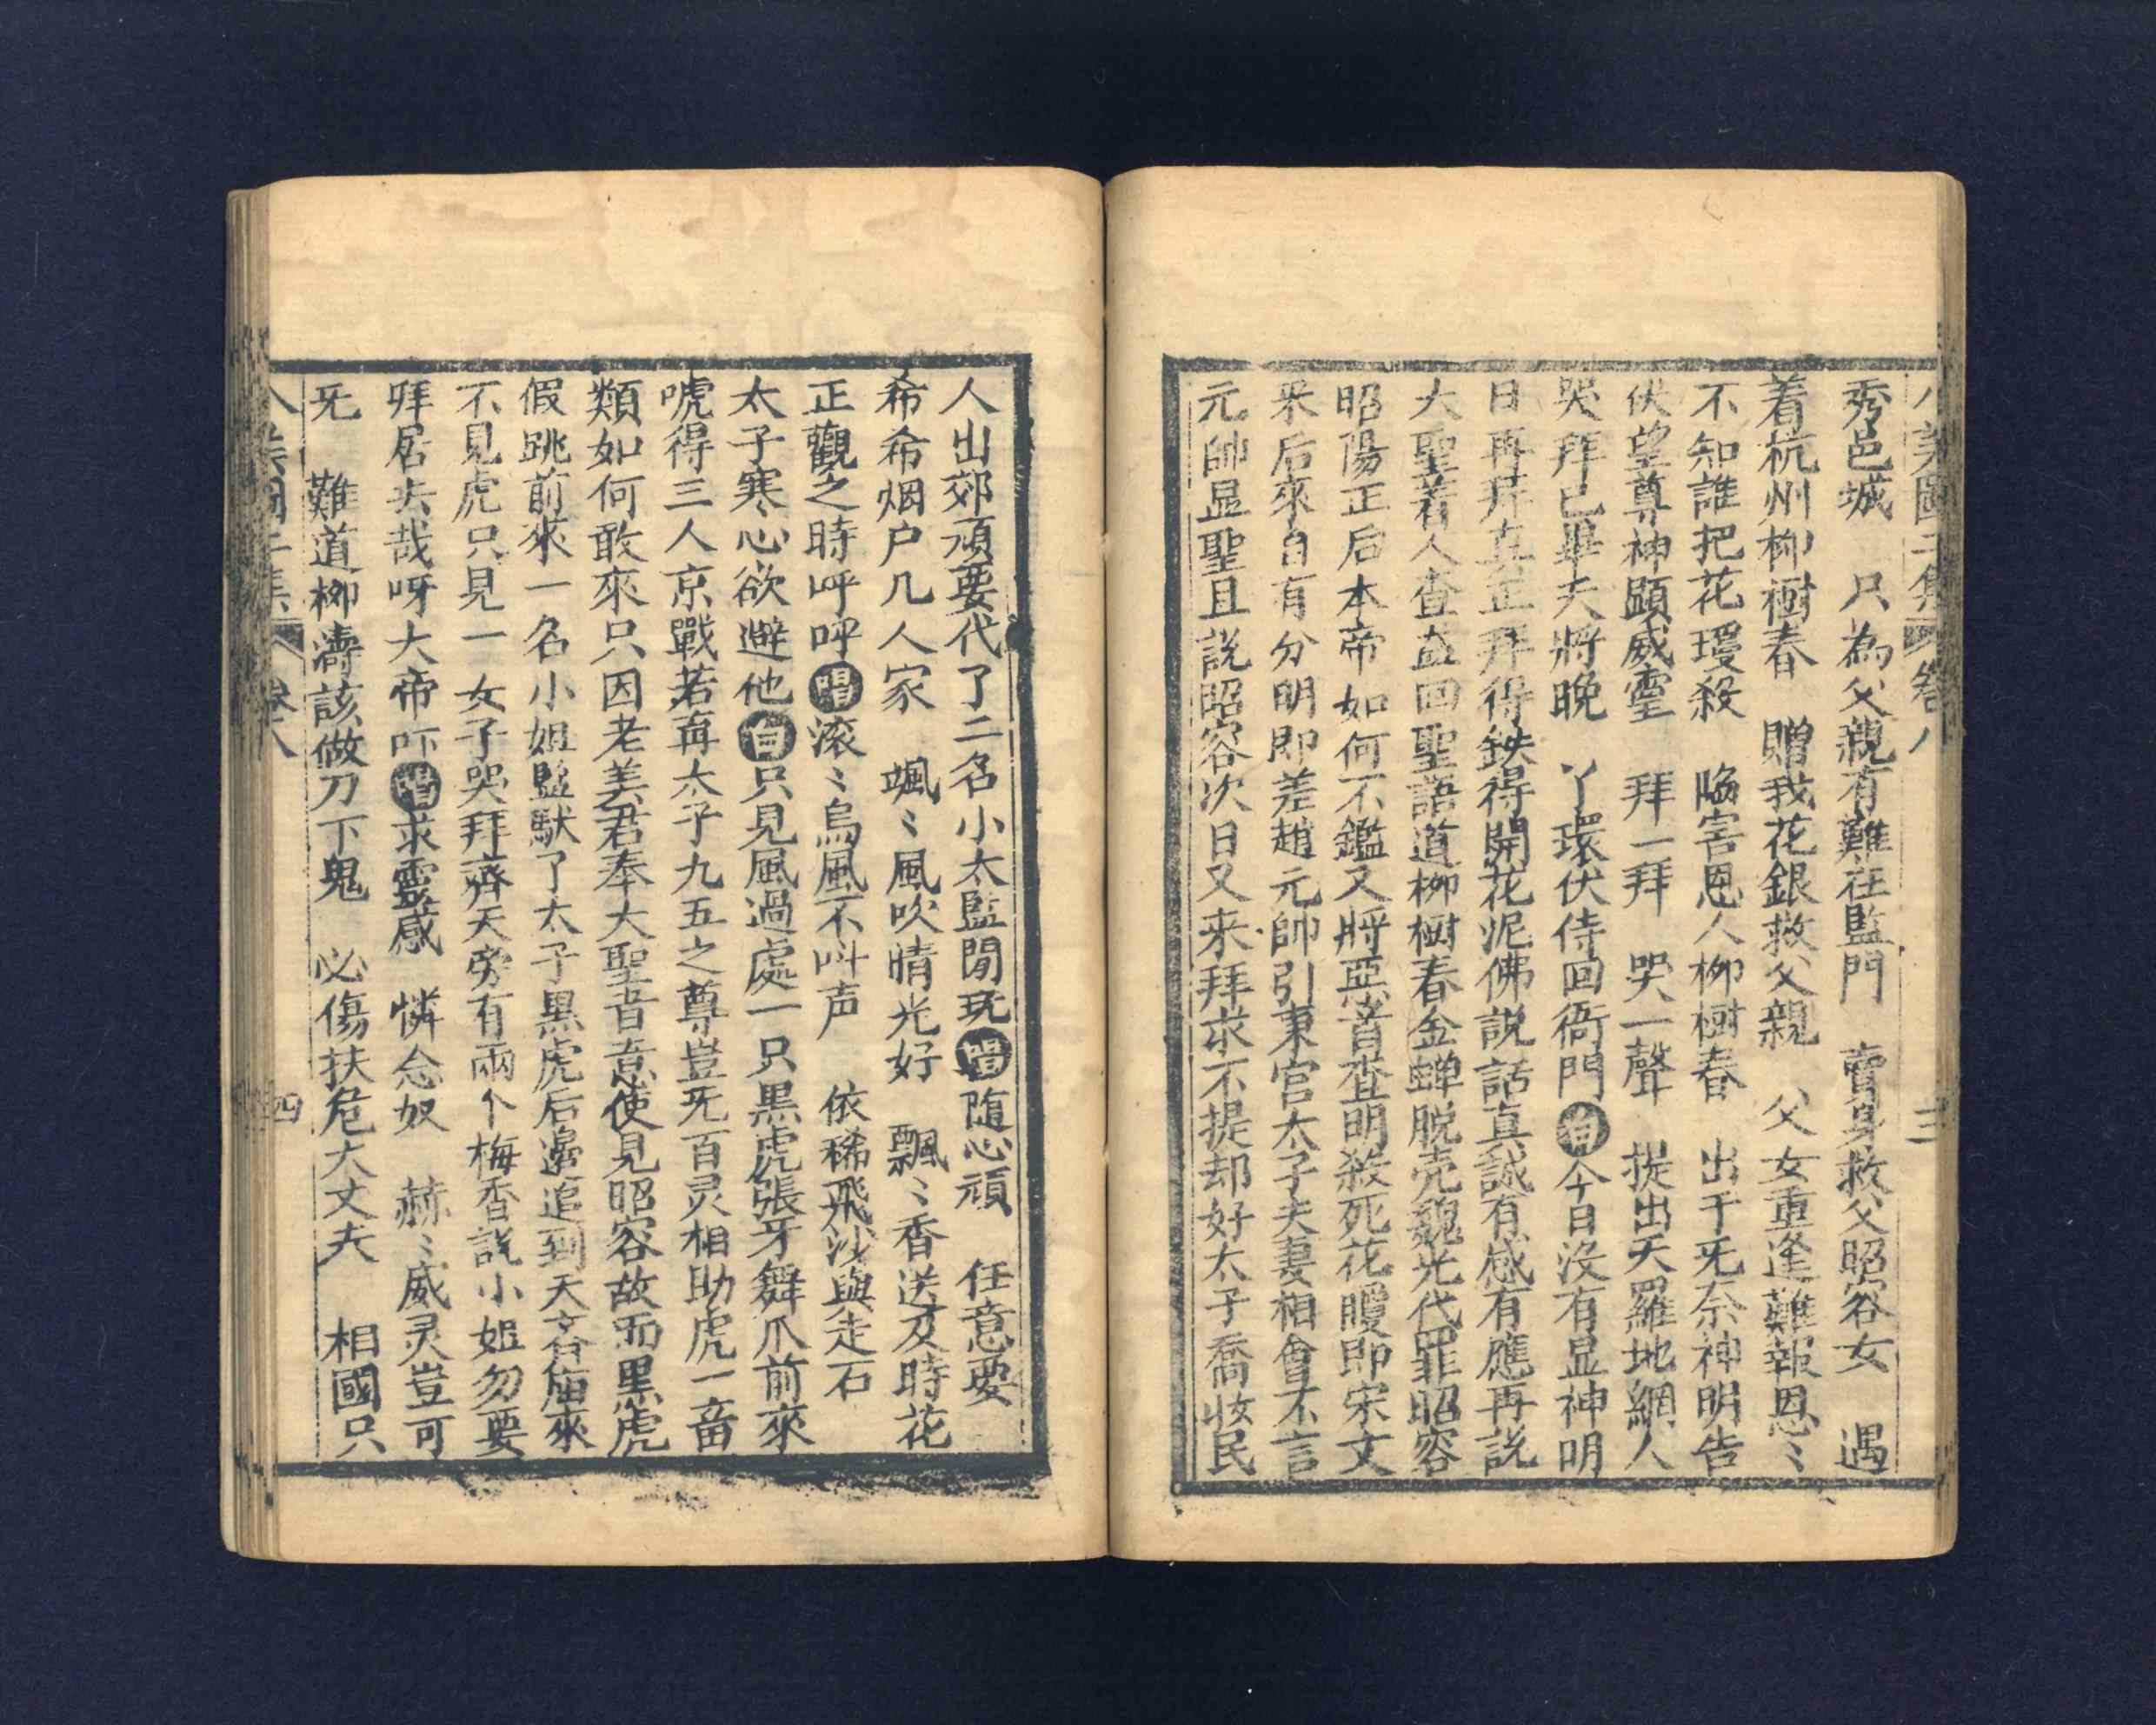 秀邑城　只為父親有難在監門　賣身救父昭容女　遇
着杭州柳樹春　贈我花銀救父親　父女重逢難報恩〻
不知誰把花瓊殺　陷害恩人柳樹春　出于旡奈神明告
伏望尊神顕威灵　拜一拜　哭一聲　提出天羅地網人
哭拜已畢天將晚　丫環伏侍回衙門白今日沒有显神明
日再拜真正拜得鉄得開花泥佛說話真誠有感有應再說
大聖着人查盘回聖語道柳樹春金蝉脱壳魏光代罪昭容
昭陽正后本帝如何不鑑又將惡音查明殺死花瞹即宋文
采后來自有分明即差趙元帥引東宫太子夫妻相會不言
元帥显聖且說昭容次日又来拜求不提却好太子喬妝民
人出郊頑要代了二名小太監閒玩唱随心頑　任意要
希希烟户几人家　颯〻風吹晴光好　飄〻香送及時花
正觀之時呼呼唱滚〻烏風不叫声　依稀飛沙與走石
太子寒心欲避他白只見風過處一只黑虎張牙舞爪前來
唬得三人京戰若再太子九五之尊豈旡百灵相助虎一畜
類如何敢來只因老美君奉大聖音意使見昭容故而黑虎
假跳前來一名小姐監馱了太子黑虎后邊追到天齐庙來
不見虎只見一女子哭拜齊天旁有兩个梅香説小姐勿要
拜居去哉呀大帝吓唱求靈感　憐念奴　赫〻威灵豈可
旡　難道柳濤該做刀下鬼　必傷扶危大丈夫　相國只
卷八
四